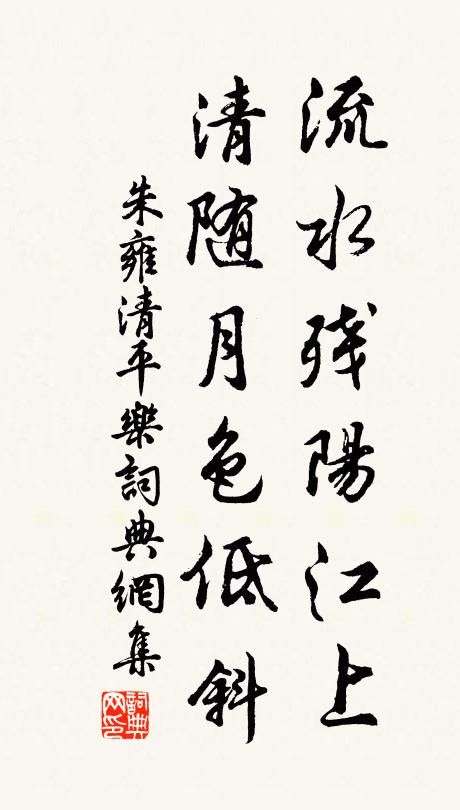 流水残陽江上
清随月色低斜
朱雍清平樂詞典網集
詞典網印